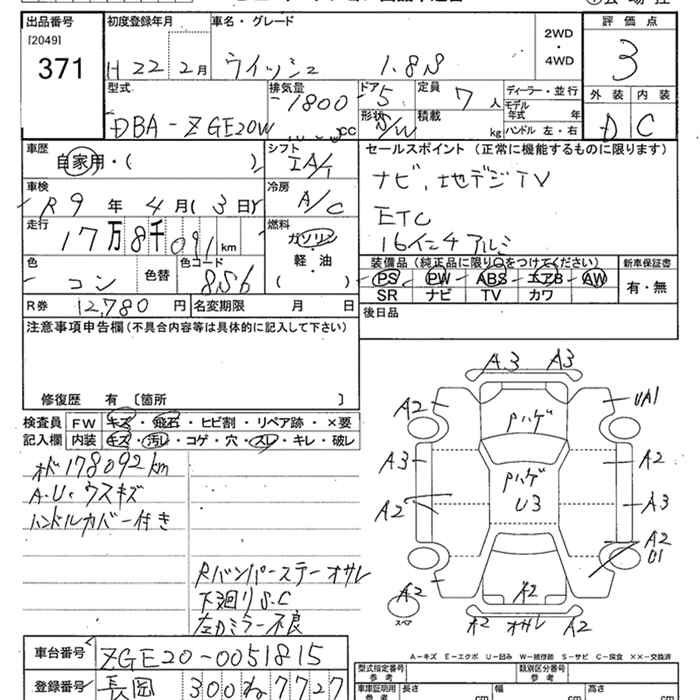 出品番号 初度登録年月 車名・グレード 評価点
[2049] 371 H22 2月 ウイッシュ 1.8S 2WD・4WD 3
型式 排気量 ドア 定員 ディーラー・並行 外装 内装
DBA-ZGE20W 1800cc 5 7人 モデル年式 年 D C
形状 S/W 積載 kg ハンドル 左・右
車歴 シフト セールスポイント (正常に機能するものに限ります)
自家用・( ) IA/T ナビ、地デジTV
車検 冷房 ETC
R9年4月(3日) A/C 16インチアルミ
走行 燃料
17万8千091km ガソリン 軽・油 ( )
装備品(純正品に限り○をつけてください) 新車保証書
色 コン 色替 色コード 8S6
PS PW ABS エアB AW 有・無
SR ナビ TV カワ
R券 12,780円 名変期限 月 日 後日品
注意事項申告欄(不具合内容等は具体的に記入して下さい)
修復歴 有 〔箇所 〕
検査員 FW キズ・飛石・ヒビ割・リペア跡・×要
記入欄 内装 キズ・汚レ・コゲ・穴・スレ・キレ・破レ
オド178092km
A.U.ウスキズ
ハンドルカバー付き
Rバンパーステーオサレ
下廻りS.C
左ドミラー不良
A3 A3
A2 UA1
Pハゲ
A3 A2
Pハゲ
A2 U3 A3
A2
U1
A2 A2
スペア A2 オサレ A2
A-キズ E-エクボ U-凹み W-補修跡 S-サビ C-腐食 XX-交換済
車台番号 ZGE20-0051815
登録番号 長岡 300 ね 7727
型式指定番号 参考 類別区分番号 参考
車庫証明用 参考 長さ cm 幅 cm 高さ cm